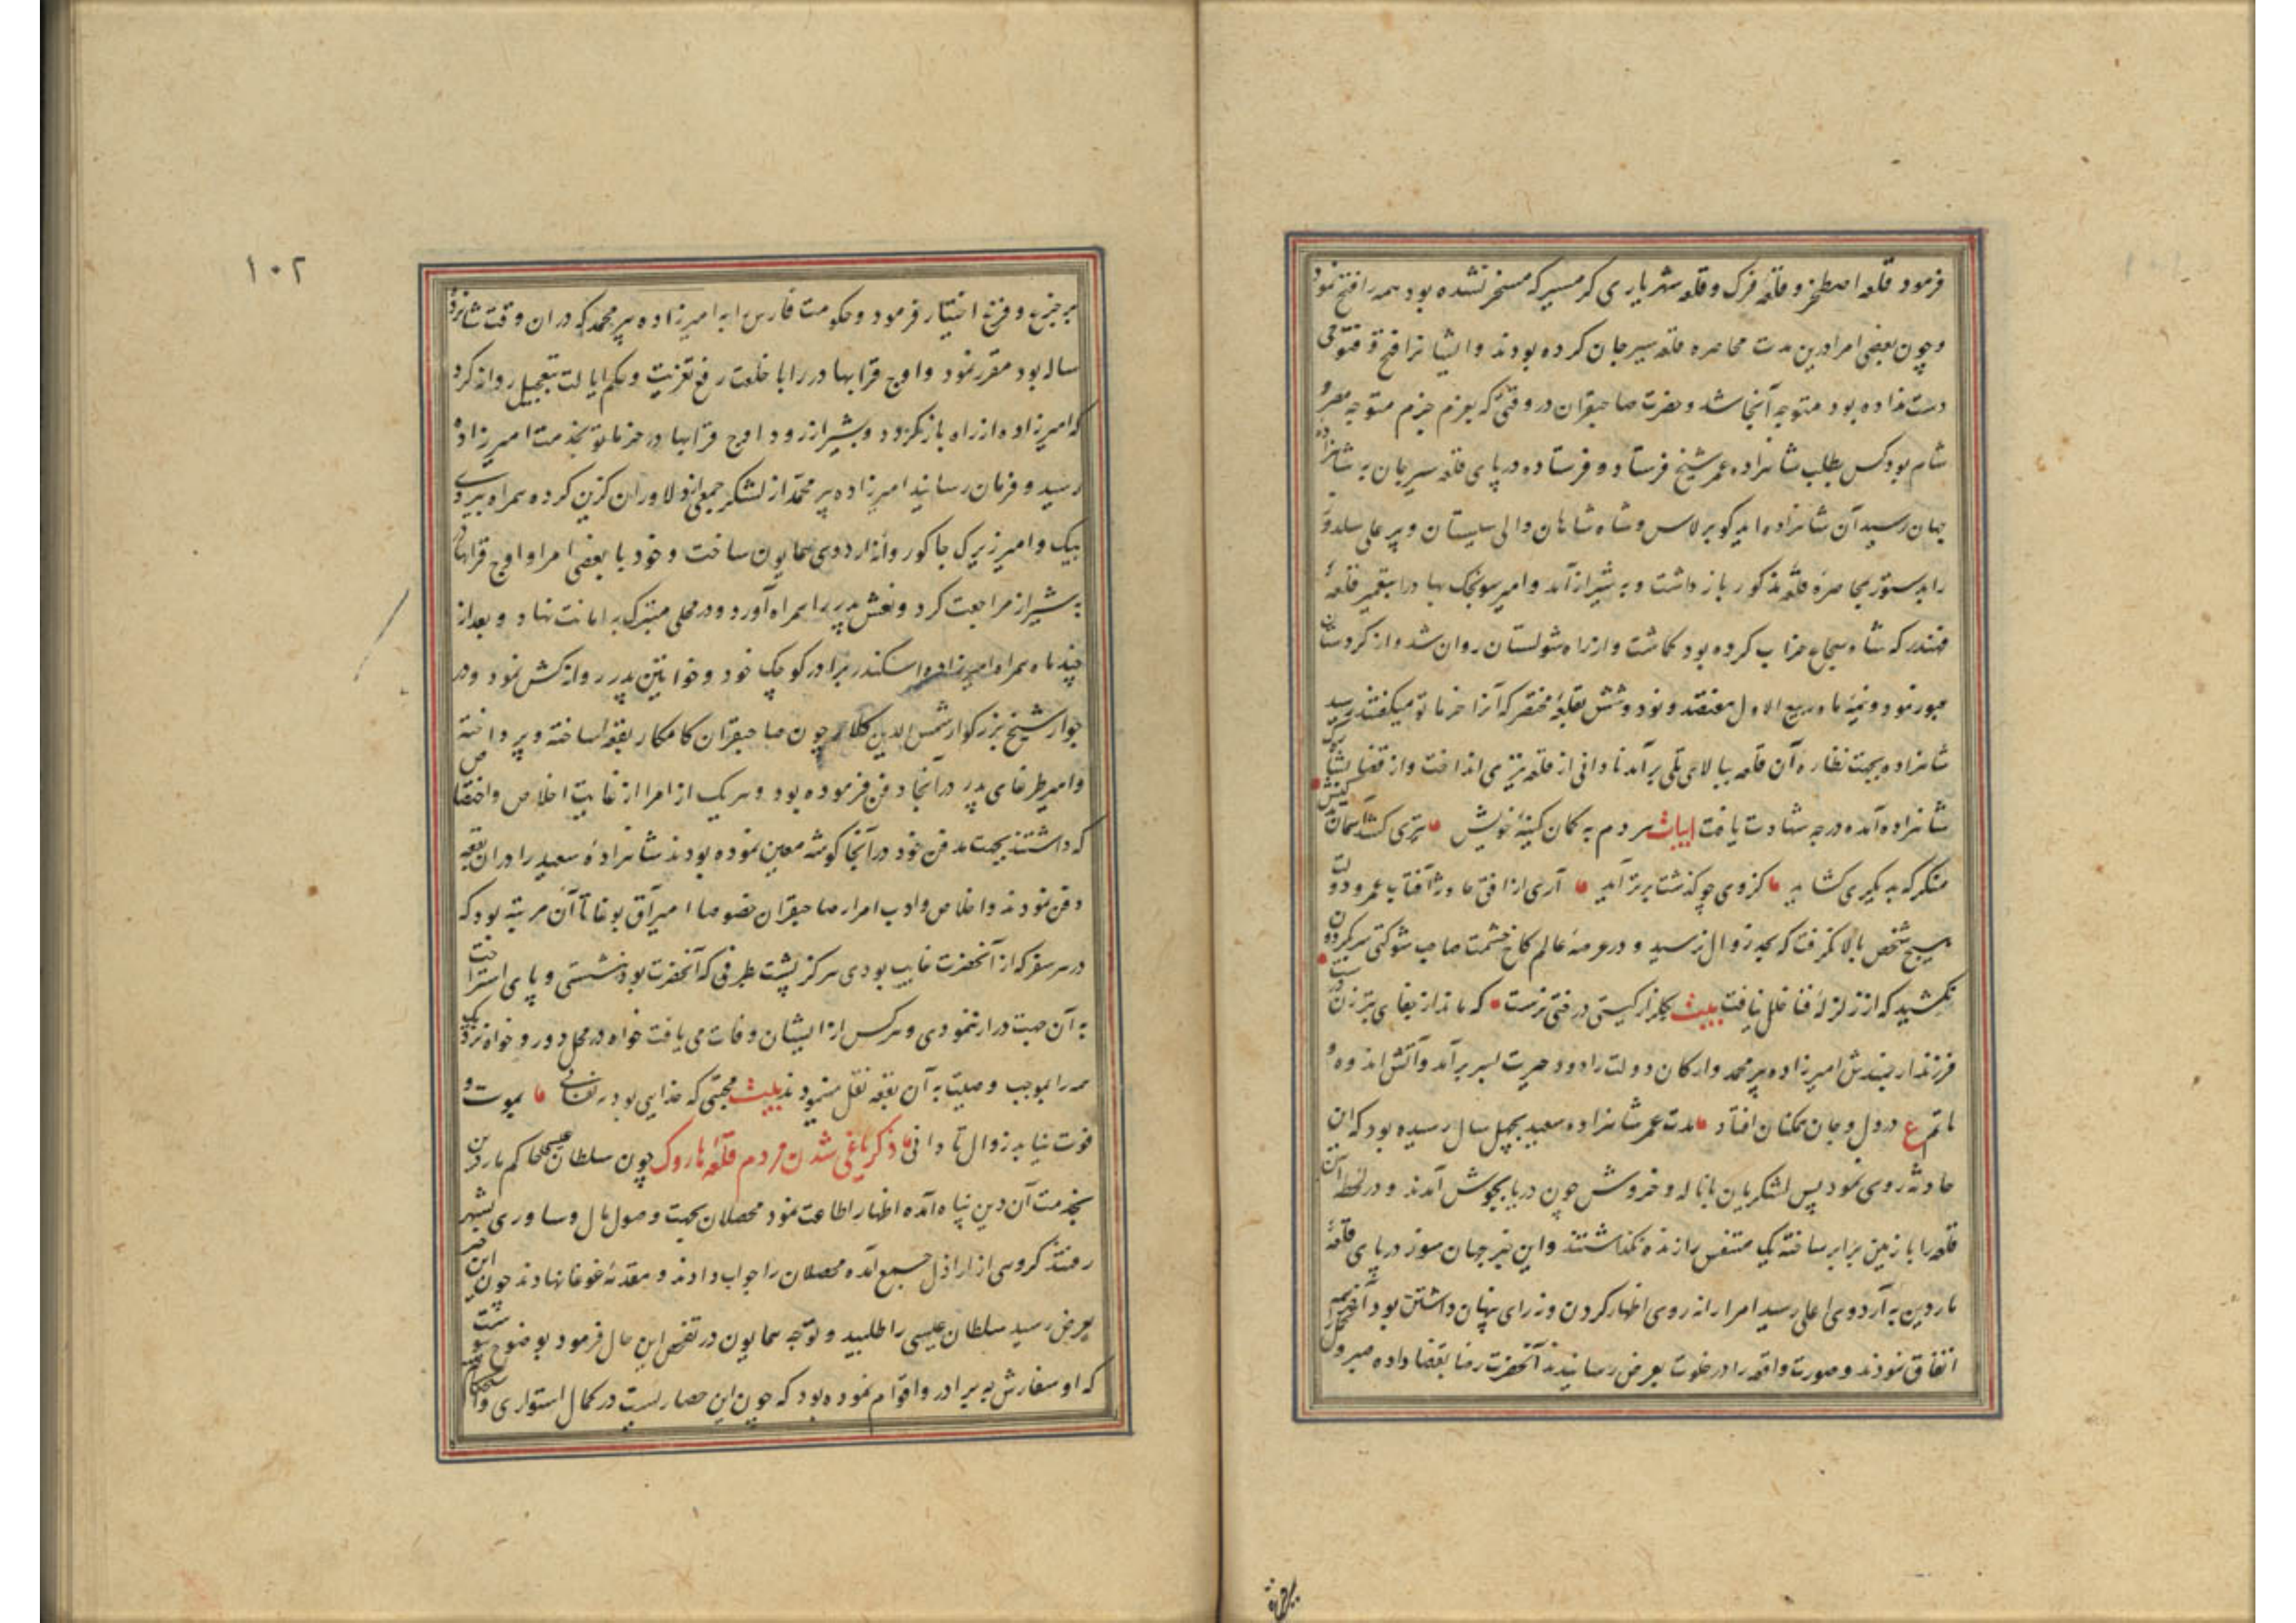 فرمود قلعه اصطخر و قلعه فرک و قلعه شهریاری کرمسیر که مسخر نشده بود همه را فتح نمود
و چون بعضی امرا درین مدت محاصره قلعه سیرجان کرده بودند و ایشانرا فتح و فتوحی
دست نداده بود متوجه آنجا شد و حضرت صاحبقران در وقتی که بعزم جزم متوجه مصر و
شام بود کس بطلب شاهزاده عمر شیخ فرستاد و فرستاده در پای قلعه سیرجان به شاهزاده
جهان رسید آن شاهزاده ایدکو برلاس و شاه شاهان والی سیستان و پیر علی سلدوز
را بدستور بمحاصره قلعه مذکور باز داشت و به شیراز آمد و امیر سونجک بهادر را بتعمیر قلعهٔ
قهندر که شاه شجاع خراب کرده بود کماشت و از راه شولستان روان شد و از کردستان
عبور نمود و نیمهٔ ماه ربیع الاول هفتصد و نود و شش بقلعهٔ مختصر که آنرا خرماتو میکفتند رسید
شاهزاده بجهت نظاره آن قلعه ببالای تلی برآمد نادانی از قلعه تیری انداخت و از قضا بشاه‌رک
شاهزاده آمده درجه شهادت یافت ابیات هر دم به کمان کینهٔ خویش تیری کشد آسمان
منکر که بدیکری کشاید کز وی چو کذشت بر تو آید آری از افق ماه و رخ آفتاب عمر و دولت
هیچ شخص بالا نکرفت که بحد زوال نرسید و در عرصهٔ عالم کاخ حشمت صاحب شوکتی سر بکردون
نکشید که از زلزلهٔ فنا خلل نیافت بیت بکلزار کیتی درختی نرست که ماند از جفای تبرزن درست
فرزند ارجمندش امیرزاده پیر محمد و ارکان دولت را دود حیرت بسر برآمد و آتش اندوه و
ماتم ع در دل و جان همکنان افتاد مدت عمر شاهزاده سعید بچهل سال رسیده بود که این
حادثه روی نمود پس لشکریان با ناله و خروش چون دریا بجوش آمدند و در لحظه آن
قلعه را با زمین برابر ساخته یک متنفس را زنده نکذاشتند و این خبر جهان سوز در پای قلعهٔ
ماردین به اردوی اعلی رسید امرا را نه روی اظهار کردن و نه رای پنهان داشتن بود آخر همه
اتفاق نمودند و صورت واقعه را در خلوت بعرض رسانیدند آنحضرت رضا بقضا داده صبر و تحمل
۱۰۲
بر جزع و فزع اختیار فرمود و حکومت فارس را به امیرزاده پیر محمد که در ان وقت شانزده
ساله بود مقرر نمود و اوج قرا بهادر را با خلعت رفع تعزیت و حکم ایالت بتعجیل روانه کرد
که امیرزاده از راه باز کردد و بشیراز رود اوج قرا بهادر در خرماتو بخدمت امیرزاده
رسید و فرمان رسانید امیرزاده پیر محمد از لشکر جمعی از دلاوران کزین کرده همراه بیردی
بیک و امیر زیرک جاکو روانه اردوی همایون ساخت و خود با بعضی امرا و اوج قرا بهادر
به شیراز مراجعت کرد و نعش پدر را همراه آورد و در محلی متبرک به امانت نهاد و بعد از
چند ماه همراه امیرزاده اسکندر برادر کوچک خود و خواتین پدر روانه کش نمود و در
جوار شیخ بزرکوار شمس الدین کلار چون صاحبقران کامکار بقعه‌ها ساخته و پرداخته
و امیر طرغای پدر در آنجا دفن فرموده بود و هر یک از امرا از غایت اخلاص و اختصاص
که داشتند بجهت مدفن خود در آنجا کوشه معین نموده بودند شاهزادهٔ سعید را در ان بقعه
دفن نمودند و اخلاص و ادب امراء صاحبقران خصوصا امیر آق بوغا تا آن مرتبه بود که
در هر سفر که از آنحضرت غایب بودی هرکز پشت بطرفی که آنحضرت بود ننشستی و پای استراحت
به آن جهت دراز ننمودی و هر کس از ایشان وفات می یافت خواه در محل دور و خواه نزدیک
همه را بموجب وصیت به آن بقعه نقل مینمودند بیت محبتی که خدایی بود نه نفسانی بموت و
فوت نیابد زوال تا دانی ذکر یاغی شدن مردم قلعهٔ ماروک چون سلطان عیسی حاکم ماردین
بخدمت آن دین پناه آمده اظهار اطاعت نمود محصلان بجهت وصول مال و ساوری بشهر
رفتند کروهی از اراذل جمع آمده محصلان را جواب دادند و مقدمهٔ غوغا نهادند چون این خبر
بعرض رسید سلطان عیسی را طلبید و توجه همایون در تفحص این حال فرمود بوضوح پیوست
که او سفارش به برادر و اقوام نموده بود که چون این حصاریست در کمال استواری و استحکام